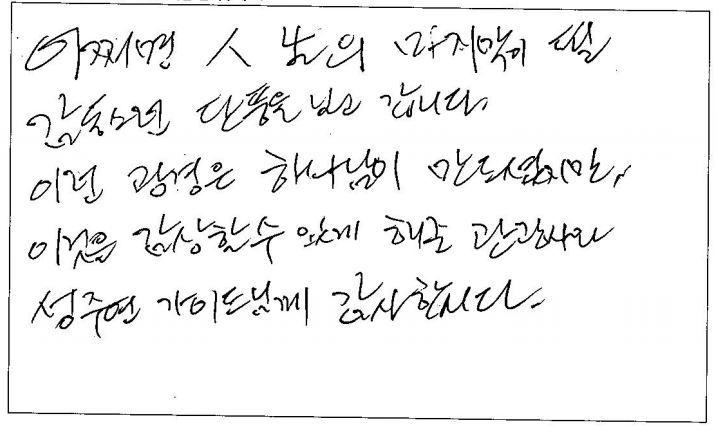 어쩌면 人生의 마지막이 될
감동스런 단풍을 보고 갑니다.
이런 광경은 하나님이 만드셨지만,
이것을 감상할수 있게 해준 관광사와
성주연 가이드님께 감사합시다.